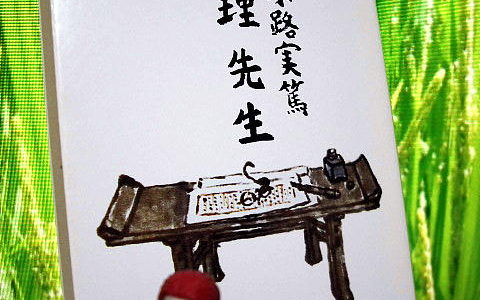 路実篤
理先生